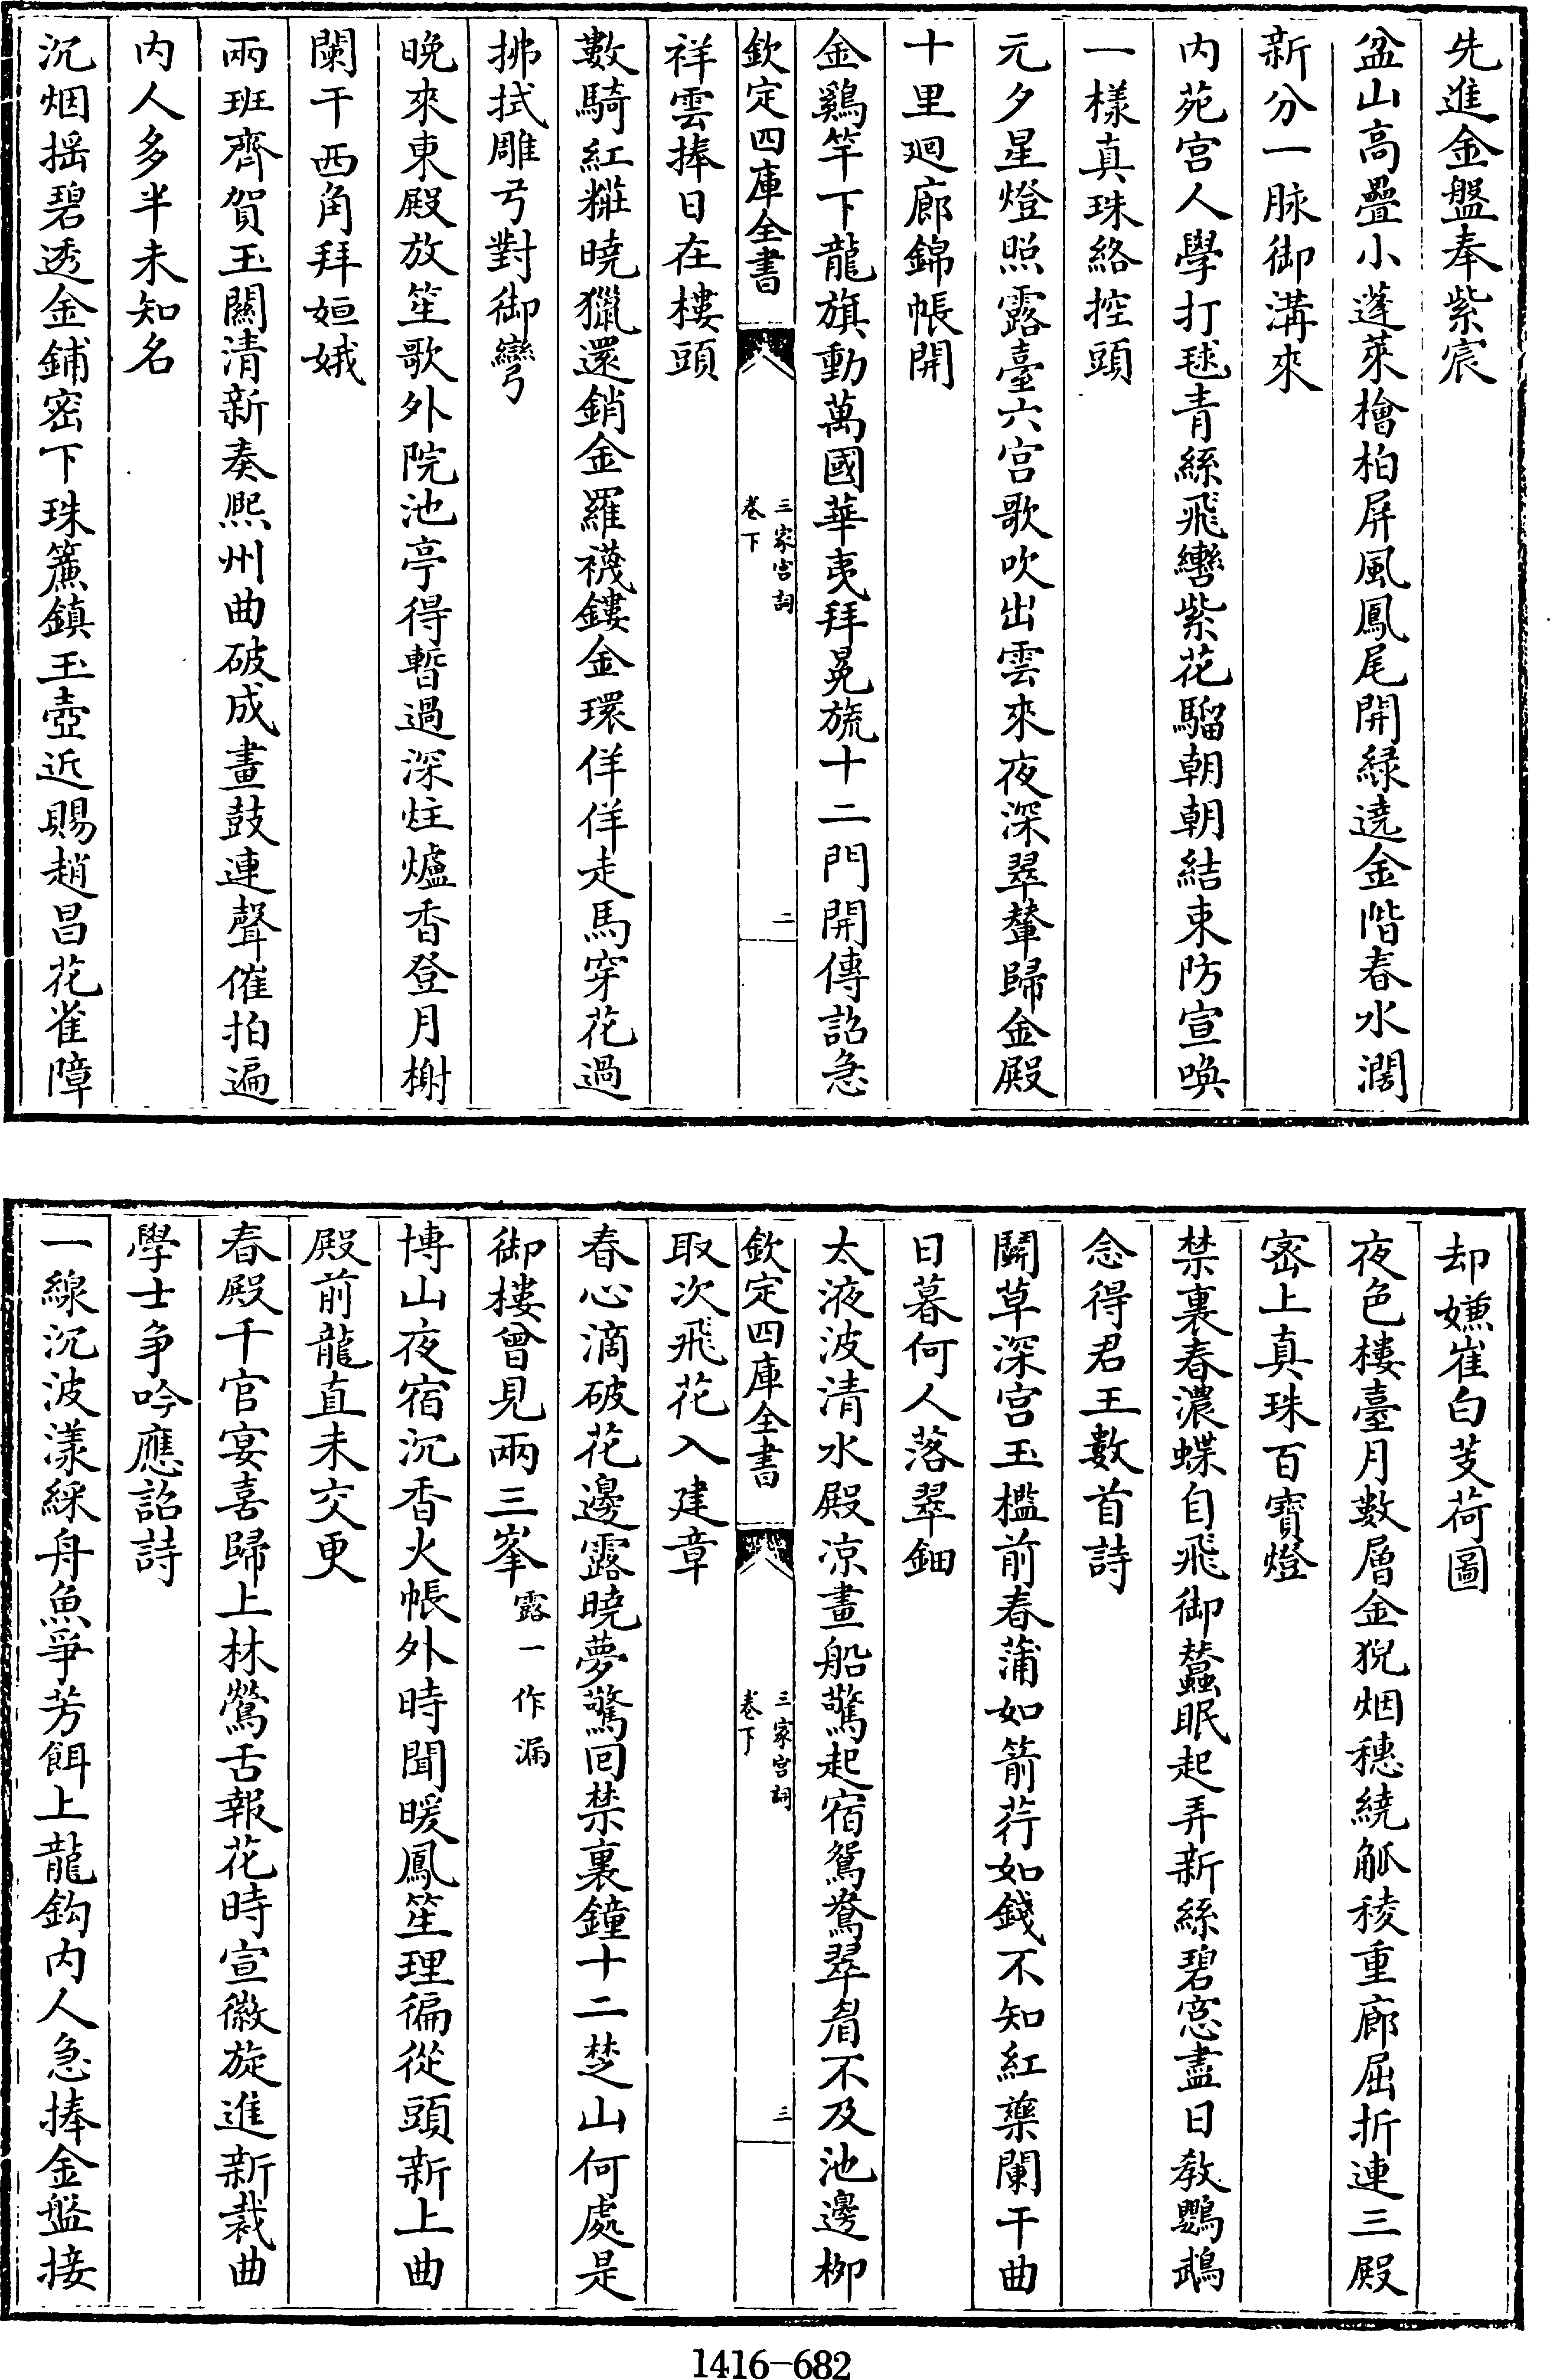 先進金盤奉紫宸
盆山高疊小蓬萊檜柏屏風鳳尾開緑遶金階春水濶
新分一脉御溝來
内苑宫人學打毬青絲飛鞚紫花騮朝朝結束防宣喚
一樣真珠絡控頭
元夕星燈照露臺六宫歌吹出雲來夜深翠輦歸金殿
十里廻廊錦帳開
金鷄竿下龍旗動萬國華夷拜冕旒十二門開傳詔急
欽定四庫全書
三家宫詞
卷下
二
祥雲捧日在樓頭
數騎紅糚曉獵還銷金羅襪鏤金環佯佯走馬穿花過
拂拭雕弓對御彎
晚來東殿放笙歌外院池亭得暫過深炷爐香登月榭
闌干西角拜姮娥
兩班齊賀玉關清新奏熙州曲破成畫鼓連聲催拍遍
内人多半未知名
沉烟摇碧透金鋪密下珠簾鎮玉壺近賜趙昌花雀障
却嫌崔白芰荷圖
夜色樓臺月數層金猊烟穗繞觚稜重廊屈折連三殿
密上真珠百寶燈
禁裏春濃蝶自飛御蠶眠起弄新絲碧窻盡日教鸚鵡
念得君王數首詩
鬭草深宫玉檻前春蒲如箭荇如錢不知紅藥闌干曲
日暮何人落翠鈿
太液波清水殿凉畫船驚起宿鴛鴦翠眉不及池邊柳
欽定四庫全書
三家宫詞
卷下
三
取次飛花入建章
春心滴破花邊露曉夢驚回禁裏鐘十二楚山何處是
御樓曾見兩三峯露一作漏
博山夜宿沉香火帳外時聞暖鳳笙理徧從頭新上曲
殿前龍直未交更
春殿千官宴喜歸上林鶯舌報花時宣徽旋進新裁曲
學士争吟應詔詩
一線沉波漾綵舟魚爭芳餌上龍鈎内人急捧金盤接
1416-682